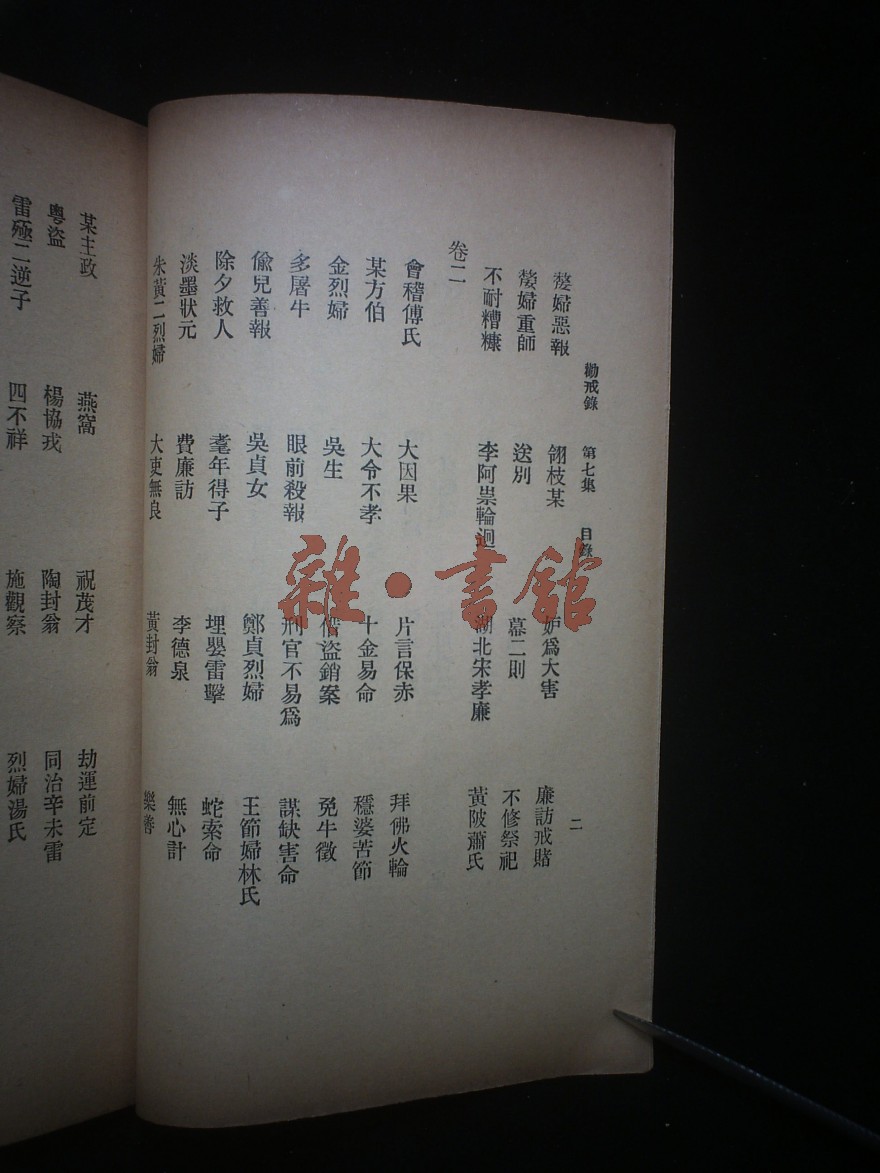 勸戒錄 第七集 目錄 二
嫠婦惡報 翎枝某 妒爲大害 廉訪戒賭
嫠婦重師 送別 幕二則 不修祭祀
不耐糟糠 李阿祟輪迴 湖北宋孝廉 黃陂蕭氏
卷二
會稽傅氏 大因果 片言保赤 拜佛火輪
某方伯 大令不孝 十金易命 穩婆苦節
金烈婦 吳生 盜銷案 免牛徵
多屠牛 眼前殺報 刑官不易爲 謀缺害命
偸兒善報 吳貞女 鄭貞烈婦 王節婦林氏
除夕救人 耄年得子 埋嬰雷擊 蛇索命
淡墨狀元 費廉訪 李德泉 無心計
朱黃二烈婦 大吏無良 黃封翁 樂善
某主政 燕窩 祝茂才 劫運前定
粵盜 楊協戎 陶封翁 同治辛未雷
雷殛二逆子 四不祥 施觀察 烈婦湯氏
雜·書館